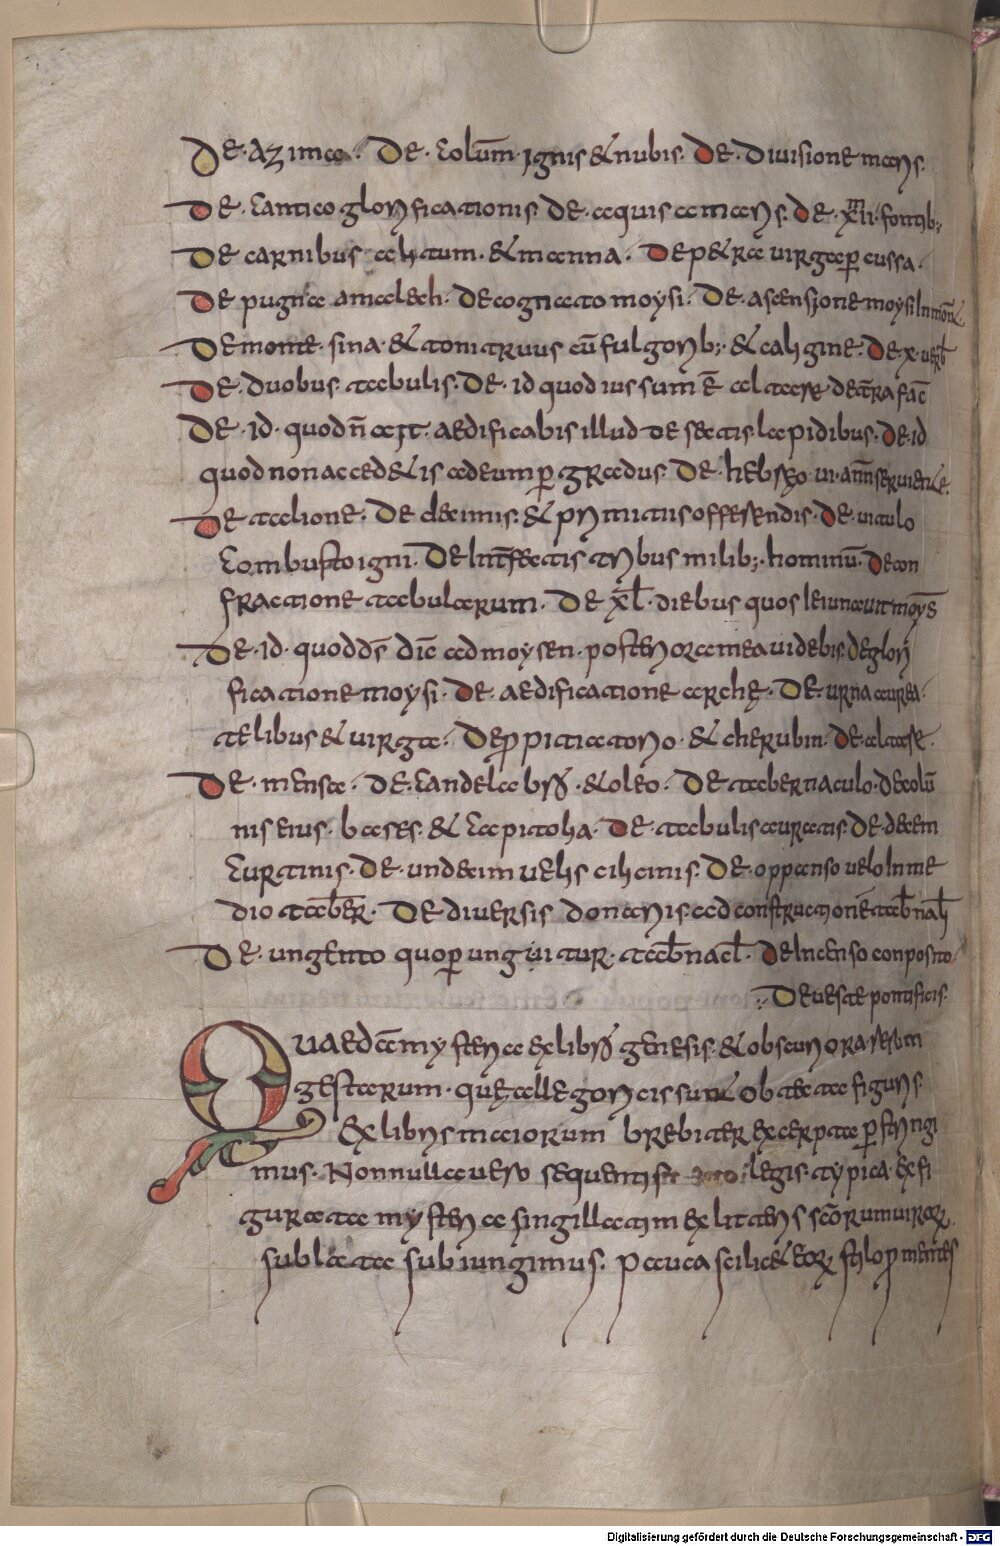 De azima. De colūm ignis & nubis. De divisione maris.
De cantico glorificationis. De aquis amaris. De XII. fontib;
De carnibus & coturn. & manna. De petra virga p̄cussa.
De pugna amalech. De cognato moysi. De ascensione moysi in monte
De monte sina & tonitruus cū fulgorib; & caligine. De x. verb
De duobus tabulis. De id quod iussum ē altare de t̄ra fac̄
De id quod n̄ ait. aedificabis illud de sectis lapidibus. De id
quod non accedetis ad eum p̄ gradus. De hebręo vi. ann̄ serviente.
De talione. De decimis & primitiis offerendis. De vitulo
combusto igni. De int̄fectis tribus milib; hominū. De con
fractione tabularum. De XL. diebus quos ieiunavit moyses
De id quod d̄s dic̄ ad moysen. posteriora mea videbis. De glori
ficatione moysi. De aedificatione archę. De urna aurea.
telibus & virga. De p̄pitiatorio & cherubin. De altare.
De mensa. De candelabris & oleo. De tabernaculo. De colū
nis eius. bases & capitolia. De tabulis auratis. De decem
curtinis. De undecim velis cilicinis. De oppanso velo in me
dio tab̄er. De diversis donariis ad constructionē tab̄nacli
De ungento quo p̄ungitur tab̄nacl. De incenso conposito.
De veste pontificis.
Quaedā mysteria ex libris genesis & obscuriora rerum
gestarum quę allegoricis sunt obtecta figuris.
ex libris maiorum brebiter excerpta p̄stringi
mus. Nonnulla vero sequentis legis typica & fi
gurata mysteria singillatim ex litteris scōrum viroꝝ
sublata subiungimus. Pauca scilicet eoꝝ stilo p̄mentes
Digitalisierung gefördert durch die Deutsche Forschungsgemeinschaft - DFG